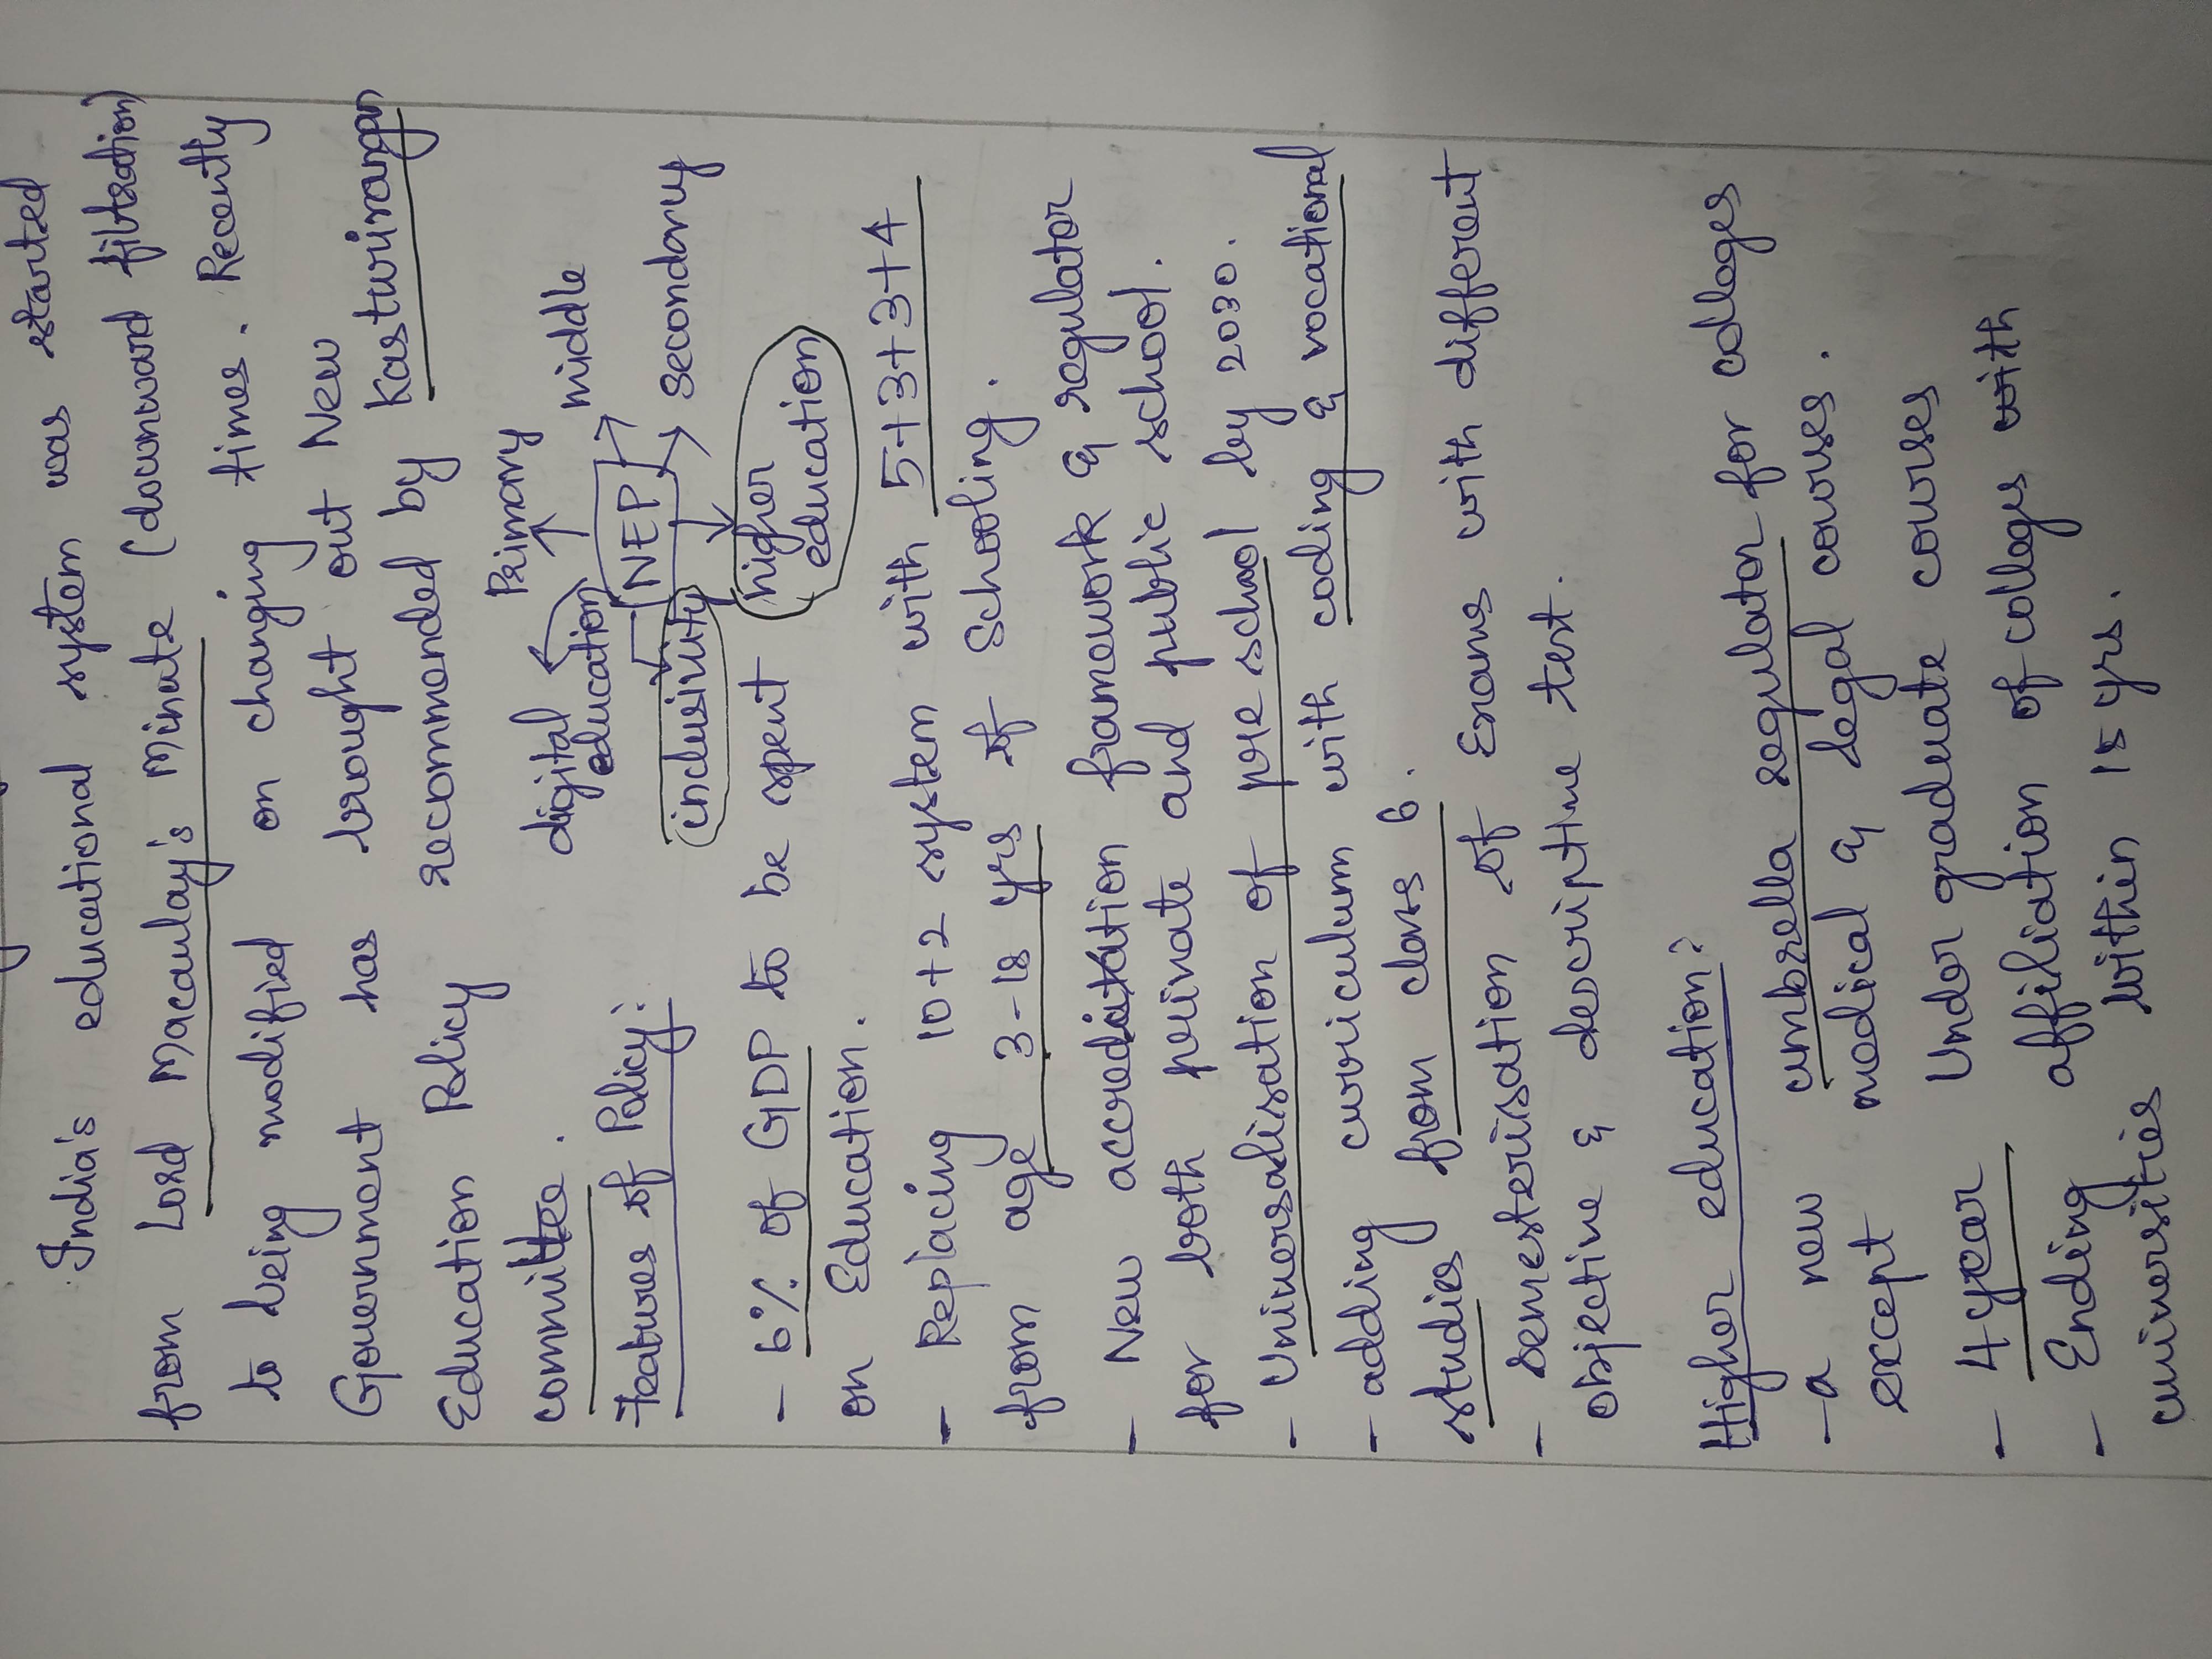 India's educational system was started
from Lord Macaulay's Minute (downward filtration)
to being modified on changing times. Recently
Government has brought out New
Education Policy recommended by Kasturirangan
committee.
Primary
digital education
middle
NEP
inclusivity
secondary
higher education
Features of Policy:
- 6% of GDP to be spent
on Education.
- Replacing 10+2 system with 5+3+3+4
from age 3-18 yrs of schooling.
- New accreditation framework & regulator
for both private and public school.
- Universalisation of pre school by 2030.
- adding curriculum with coding & vocational
studies from class 6.
- semesterisation of Exams with different
objective & descriptive test.
Higher education?
- a new umbrella regulator for colleges
except medical & legal courses.
- 4 year Under graduate courses
- Ending affiliation of colleges with
universities within 15 yrs.